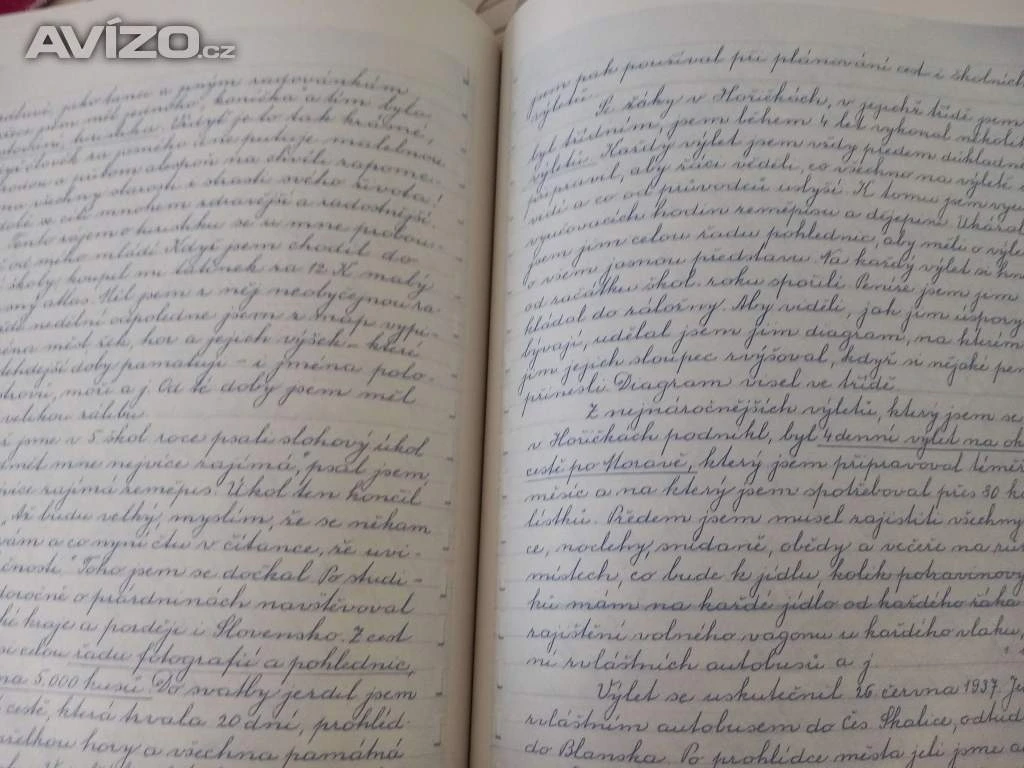 AVÍZO.cz
jako tanec a jiným radovánkám
měl jediného "koníčka" a tím byla
turistika. Vždyť je to tak krásné,
člověk za jasného dne putuje malebnou
a přitom alespoň na chvíli zapome-
na všechny starosti i strasti svého života!
se cítí mnohem zdravější a radostnější.
Tento zájem o turistiku se ve mne probou-
od mého mládí. Když jsem chodil do
školy, koupil mi tatínek za 12 K malý
atlas. Měl jsem z něj neobyčejnou ra-
nedělní odpoledne jsem z map vypi-
měst, řek, hor a jejich výšek - které
doby pamatuji - i jména polo-
moří a j. Od té doby jsem měl
velikou zálibu.
jsme v 5. škol. roce psali slohový úkol
mne nejvíce zajímá," psal jsem,
zajímá zeměpis. Úkol ten končil
"Až budu velký, myslím, že se někam
a co nyní čtu v čítance, že uvi-
Toho jsem se dočkal. Po studi-
o prázdninách navštěvoval
kraje a později i Slovensko. Z cest
si celou řadu fotografií a pohlednic,
na 5.000 kusů. Do svatby jezdil jsem
cestě, která trvala 20 dní, prohléd-
hory a všechna památná
jsem pak používal při plánování cest i školních
výletů.
Se žáky v Hořičkách, v jejichž třídě jsem
byl třídním, jsem během 4 let vykonal několik
výletů. Každý výlet jsem vždy předem důkladně
připravil, aby žáci věděli, co všechno na výletě
vidí a co od průvodců uslyší. K tomu jsem
vyučovacích hodin zeměpisu a dějepisu. Ukázal
jsem jim celou řadu pohlednic, aby měli o výletě
o všem jasnou představu. Na každý výlet si
od začátku škol. roku spořili. Peníze jsem jim
kládal do záložny. Aby viděli, jak jim úspory
bývají, udělal jsem jim diagram, na kterém
jim jejich sloupec zvyšoval, když si nějaké
přinesli. Diagram visel ve třídě.
Z nejnáročnějších výletů, který jsem se
v Hořičkách podnikl, byl 4denní výlet na
cestě po Moravě, který jsem připravoval téměř
měsíc a na který jsem spotřeboval přes 30
lístků. Předem jsem musel zajistiti všechny
noclehy, snídaně, obědy a večeře na
místech, co bude k jídlu, kolik potravinový
ků mám na každé jídlo od každého žáka
zajištění volného vagonu u každého vlaku,
ní zvláštních autobusů a j.
Výlet se uskutečnil 26. června 1937.
zvláštním autobusem do Čes. Skalice, odtud
do Blanska. Po prohlídce města jeli jsme